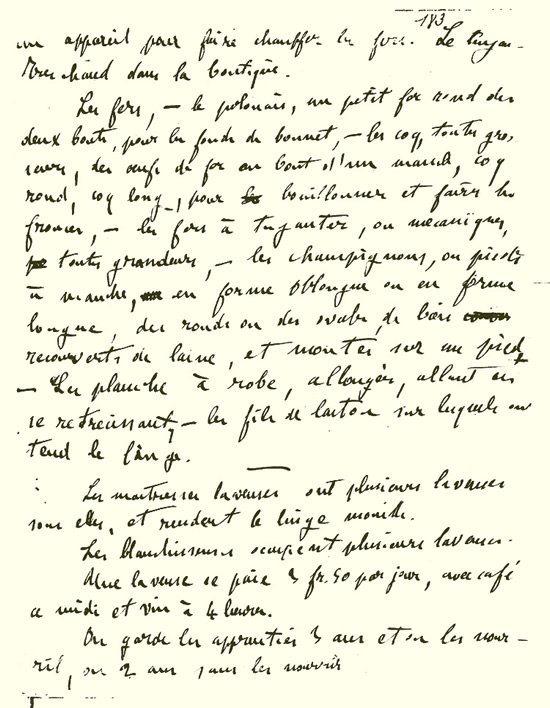 183
un appareil pour faire chauffer les fers. Le linge
très chaud dans la boutique.
Les fers, — le polonais, un petit fer rond des
deux bouts, pour les fonds de bonnet, — les coq, toutes gros-
seurs, des œufs de fer au bout d'un manche, coq
rond, coq long, pour bouillonner et faire les
froncer, — les fers à tuyauter, ou mécaniques,
toutes grandeurs, — les champignons, ou pieds
à manche, en forme oblongue ou en forme
longue, des ronds ou des ovales, de bois
recouverts de laine, et montés sur un pied,
— La planche à robe, allongée, allant en
se retrécissant, — les fils de laiton sur lesquels on
tend le linge.
Les maîtresses laveuses ont plusieurs laveuses
sous elles, et rendent le linge mouillé.
Les blanchisseuses occupent plusieurs laveuses.
Une laveuse se paie 3 fr. 50 par jour, avec café
a midi et vin à 4 heures.
On garde les apprenties 3 ans et on les nour-
rit, ou 2 ans sans les nourrir